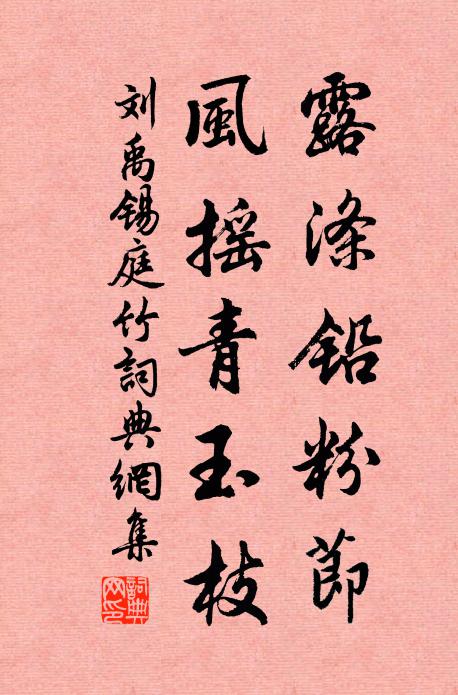 露涤铅粉節
風摇青玉枝
刘禹锡庭竹詞典網集
詞典网印